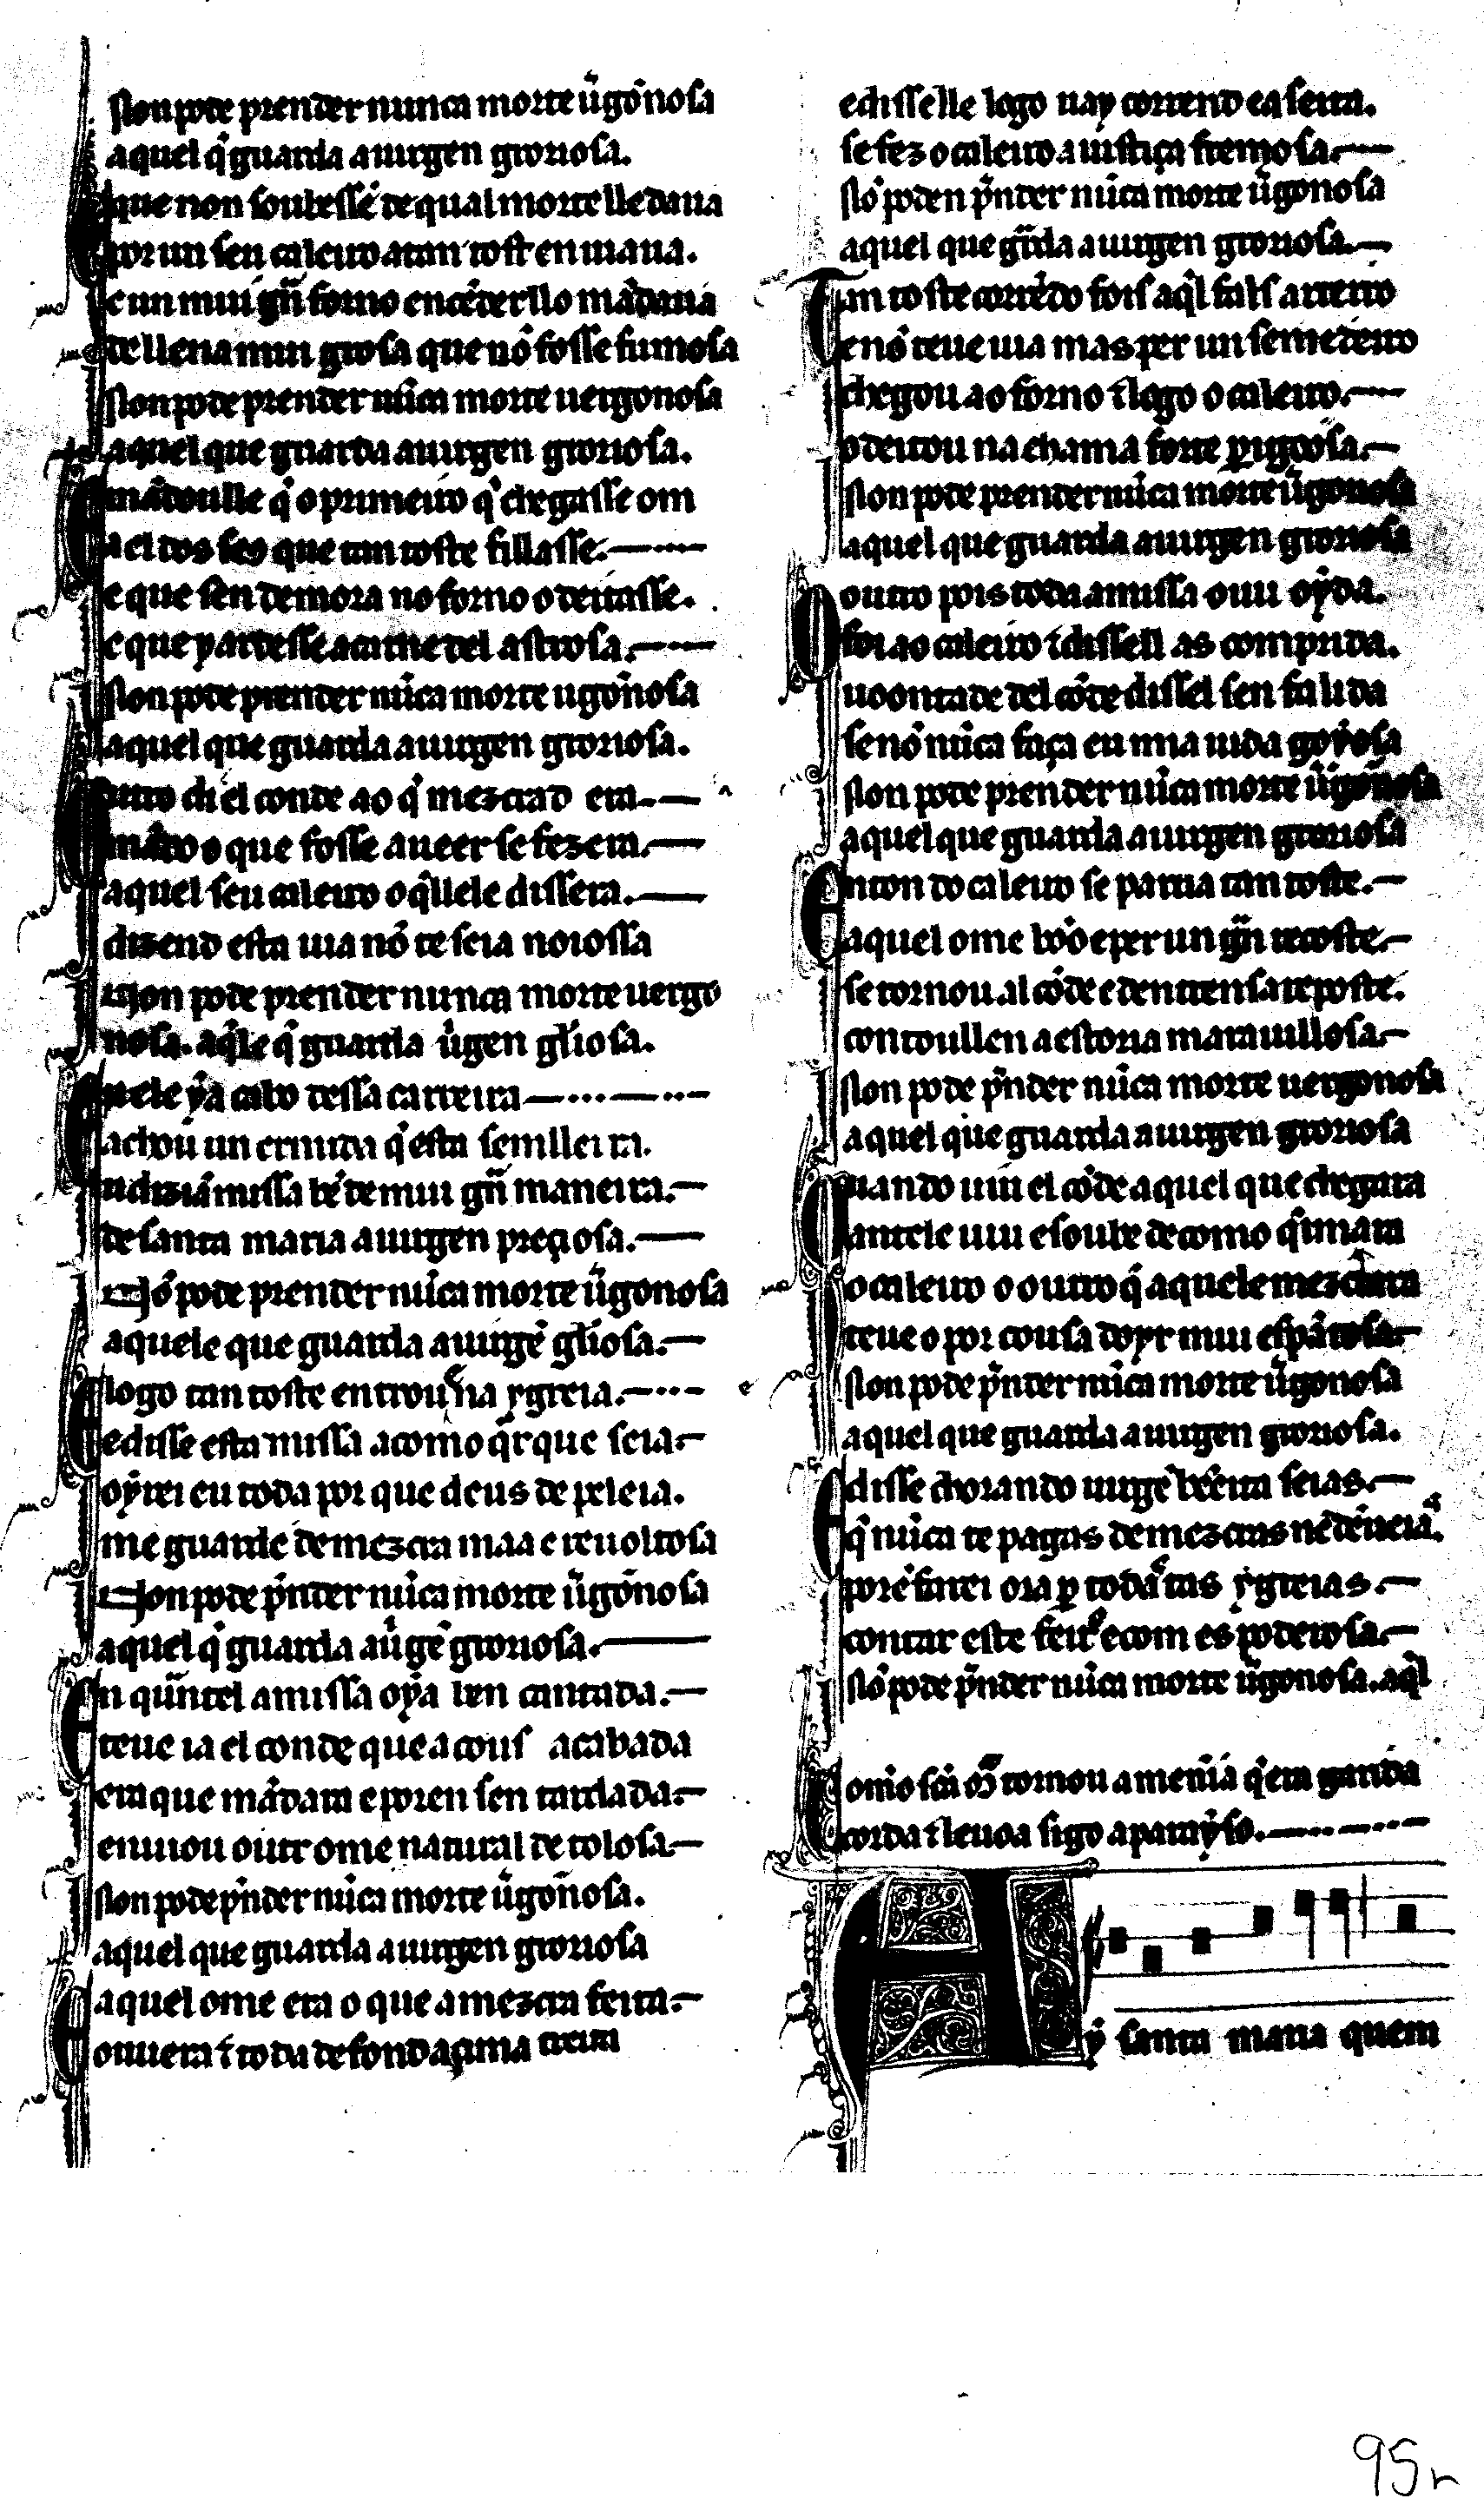 Non pode prender nunca morte ũgõnosa
aquel q̇ guarda a uirgen groriosa.
que non soubessẽ de qual morte lle daua
por un seu caleiro atan tost enuiaua.
e un mui grã forno encẽder llo mãdaua
de llena mui grossa que nõ fosse fumosa
Non pode prender nũca morte uergonosa
aquel que guarda a uirgen groriosa.
E mãdoulle q̇ o primeiro q̇ chegasse om
a el dos seos que tan toste fillasse.
e que sen demora no forno o deitasse.
e que y ardesse a carne del astrosa.
Non pode prender nũca morte ũgõnosa
aquel que guarda a uirgen groriosa.
Outro di el conde ao q̇ mezcrad era
mãdoo que fosse a ueer se fezera.
aquel seu caleiro o q̇lle le dissera.
dizend esta uia nõ te seia noiossa
Non pode prender nunca morte uergo
nosa. aq̇le q̇ guarda ũgen gl̃iosa.
E u ele ẏa cabo dessa carreira
achou un ermida q̇ esta senlleira.
u diziã missa bẽ de mui grã maneira.
de santa maria a uirgen preçiosa.
Nõ pode prender nũca morte ũgonosa
aquele que guarda a uirgẽ gl̃iosa.
E logo tan toste entrou na ygreia.
e disse esta missa a como q̇r que seia
oẏrei eu toda por que deus de peleia.
me guarde de mezcra maa e reuoltosa
Non pode p̃nder nũca morte ũgõnosa
aquel q̇ guarda a ũgẽ groriosa.
En quãt el a missa oẏa ben cantada.
teue ia el conde que a cous acabada
era que mãdara e poren sen tardada
enuiou outr ome natural de tolosa
Non pode p̃nder nũca morte ũgoñosa.
aquel que guarda a uirgen groriosa
E aquel ome era o que a mezcra feita
ouuera ⁊ toda de fond a çima treita
e disselle logo uay corrend e aseita.
se fez o caleiro a iustiça fremosa.
Nõ poden p̃nder nũca morte ũgonosa
aquel que gũrda a uirgen groriosa.
Tan toste corrẽdo foisʼ aq̇l fals arteiro
e nõ teue uia mas per un semedeiro
chegou ao forno ⁊ logo o caleiro.
o deitou na chama fort e p̱igoosa.
Non pode prender nũca morte ũgonosa
aquel que guarda a uirgen groriosa
O outro pois toda a missa ouu oẏda.
foi ao caleiro ⁊ dissell as comprida.
uoontade del cõde dissel sen falida
senõ nũca faça eu mia uida goẏosa
Non pode prender nũca morte ũgoñosa
aquel que guarda a uirgen groriosa
Enton do caleiro se partia tan toste.
aquel ome bõo e per un grã recoste
se tornou al cõde e dentren sa reposte.
contoullen a estoria marauillosa
Non pode p̃nder nũca morte uergonosa
aquel que guarda a uirgen groriosa
Quando uiu el cõde aquel que chegara
ant ele uiu e soube de como q̇imara
o caleiro o outro q̇ aquele mezcrara
teue o por cousa doyr mui espãtosa
Non pode p̃nder nũca morte ũgonosa
aquel que guarda a uirgen groriosa.
E disse chorando uirgẽ bẽeita seias.
q̇ nũca te pagas de mezcras nẽ dẽueias.
porẽ farei ora p̱ todas tas ẏgreias.
contar este feito e com es poderosa
Nõ pode p̃nder nũca morte ũgonosa. aq̇l
Como scã mã tornou a menĩa q̇ era garrida
corda ⁊ leuoa sigo a parayso.
Aẏ santa maria quem
95r